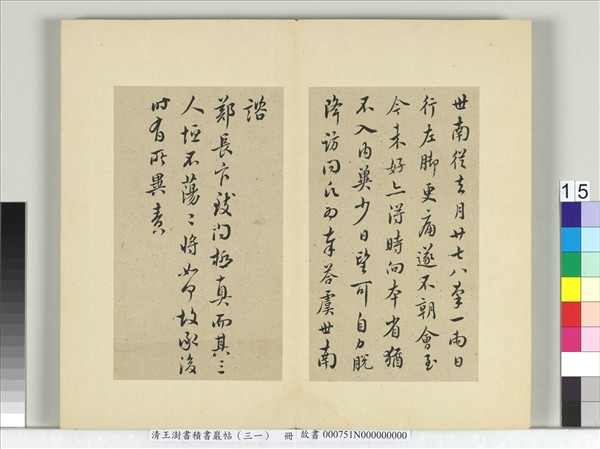 世南從去月廿七八率一兩日
行左脚更痛遂不朝會至
今未好亦得時向本省猶
不入內冀少日望可自力脫
降訪問氏為奉答虞世南
諮
鄭長官致問極真而其三
人恒不蕩〻將如何故承後
時有所異責
清王澍書積書巖帖（三一） 冊 故書 000751N000000000
15